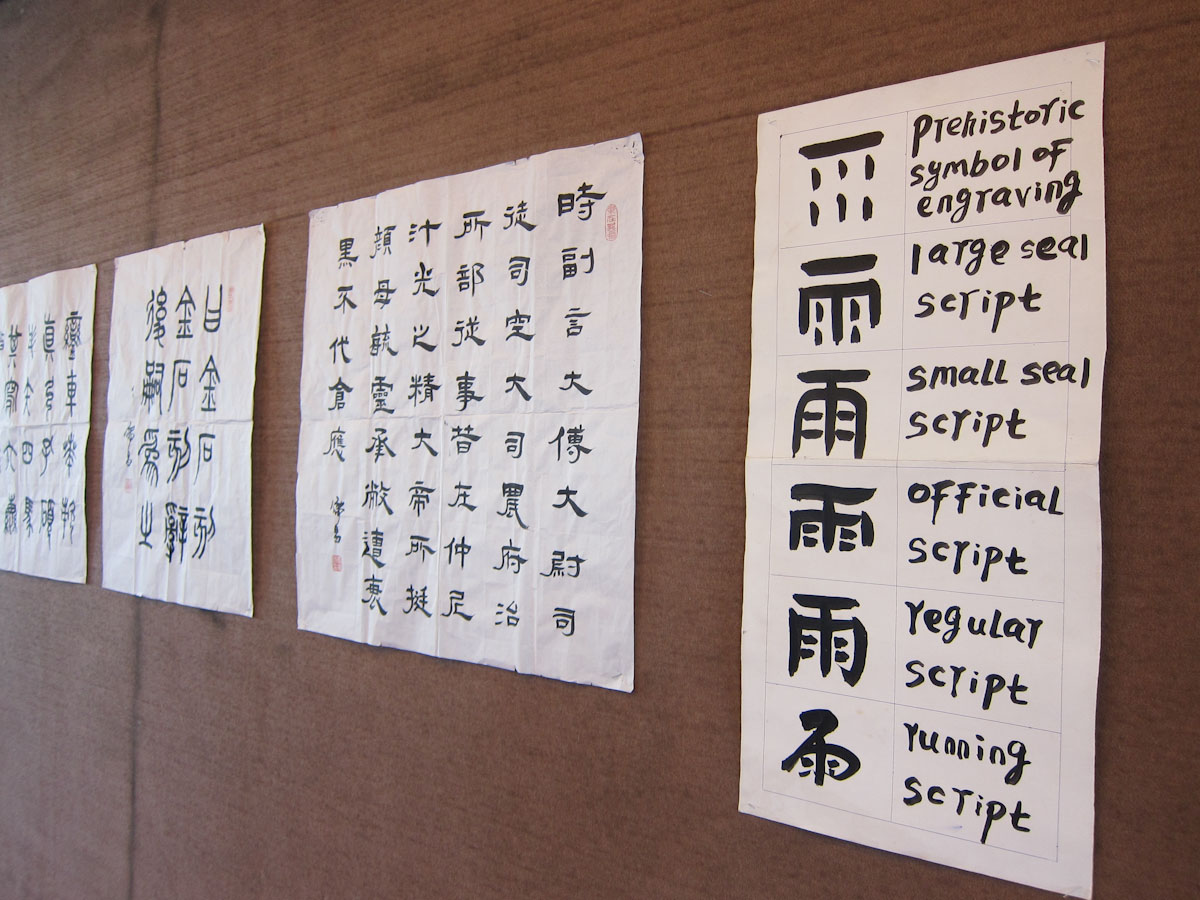 prehistoric
symbol of
engraving
雨
large seal
script
雨
small seal
script
雨
official
script
雨
regular
script
雨
running
script
時副言大傅大尉司
徒司空大司農府治
所部從事昔在仲尼
汁光之精大帝所挺
顏母毓靈承敝遭衰
黑不代倉應
曰金石刻
金石刻辭
後嗣爲之
鑾車